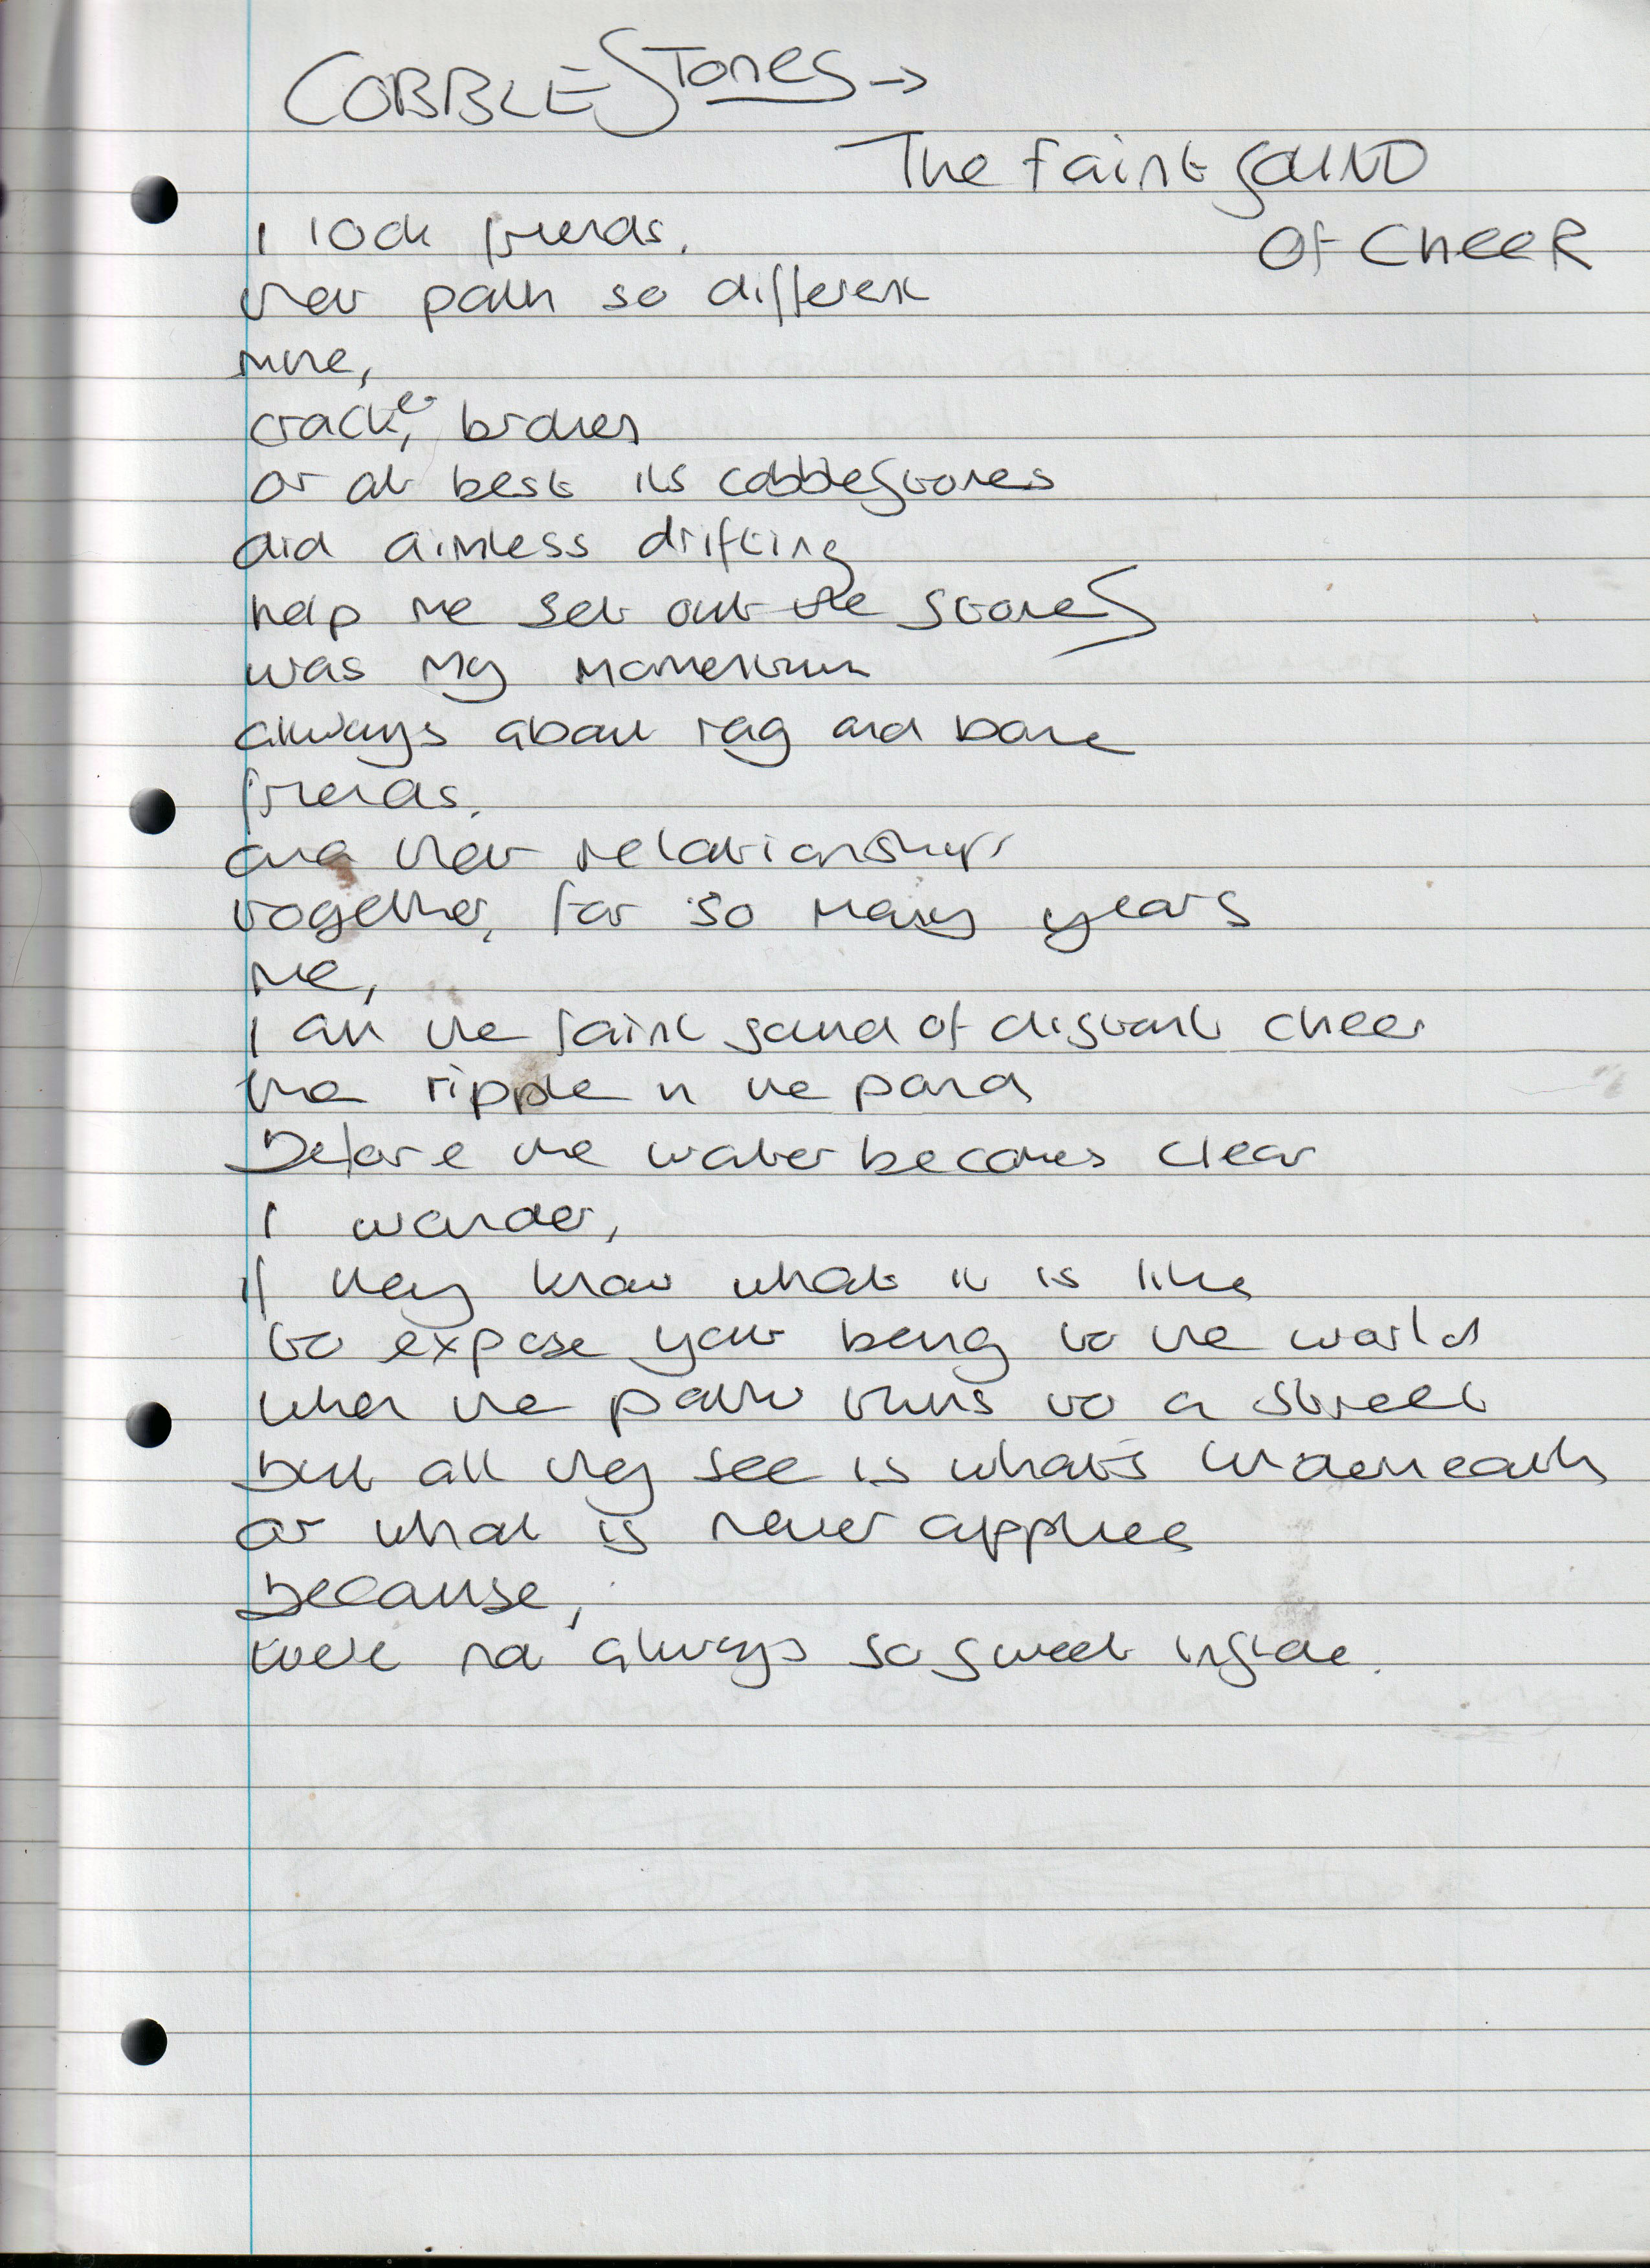 COBBLESTones →
The faint SOUND
Of CheeR
I look friends,
their path so different
mine,
cracked, broken
or at best its cobblestones
did aimless drifting
help me set out the stones
was my momentum
always about rag and bone
friends,
and their relationships
together, for so many years
me,
I am the faint sound of distant cheer
the ripple in the pond
before the water becomes clear
I wonder,
if they know what it is like
to expose your being to the world
when the path turns to a street
but all they see is what's underneath
or what is never applied
because,
we're not always so sweet inside.